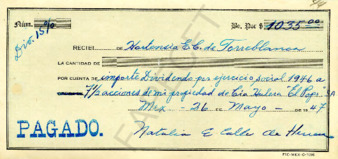 Núm. Bo. Por $ 1035.00
Div. 15%
RECIBÍ DE Hortensia E.C. de Torreblanca
LA CANTIDAD DE
POR CUENTA DE importe Dividendo por ejercicio social 1946 a
acciones de mi propiedad de Cia Hulera "El Popo" S.A.
Mex. 26 Mayo 1947
PAGADO. Natalia E